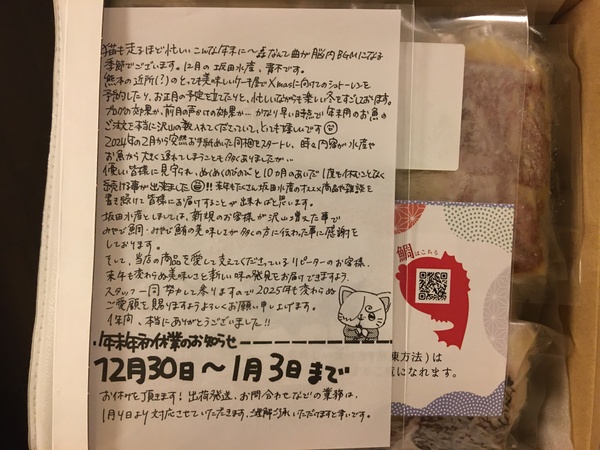 猫も走るほど忙しい こんな年末に〜 なんて曲が脳内BGMになる
季節でございます。12月の坂田水産、青木です。
熊本の近所(?)のとっても美味しいケーキ屋でXmasに向けてのシュトーレンを
予約したり、お正月の予定を立てたりと、忙しいながらも楽しい冬をすごしております。
ブログの効果か、前月の声かけの効果か… かなり早い時点で年末用のお魚の
ご注文を本当に沢山の数入れてくださっていて、とっても嬉しいです
2024年の2月から突然お手紙めいた同梱をスタートし、時々内容が水産や
お魚から大きく逸れてしまうことも多くありましたが…
優しい皆様に見守られ、ぬくぬくのびのびと10カ月のあいだ1度も休むことなく
続ける事が出来ました!! 来年もたくさん坂田水産のオススメ商品や雑談を
書き続けて皆様にお届けすることが出来ればと思います。
坂田水産としましては、新規のお客様が沢山増えた事で
みやび鯛・みやび鯖の美味しさが多くの方に伝わった事に感謝を
しております。
そして、当店の商品を愛して支えてくださっているリピーターのお客様、
来年も変わらぬ美味しさと新しい味の発見をお届けできますよう、
スタッフ一同努力して参りますので2025年も変わらぬ
ご愛顧を賜りますようよろしくお願い申し上げます。
1年間、本当にありがとうございました!!
年末年初休業のお知らせ
12月30日〜1月3日まで
お休みを頂きます！出荷発送、お問合わせなどの業務は、
1月4日より対応させていただきます。ご理解ご了承いただけますと幸いです。
鯛はこちら
凍方法)は
になれます。